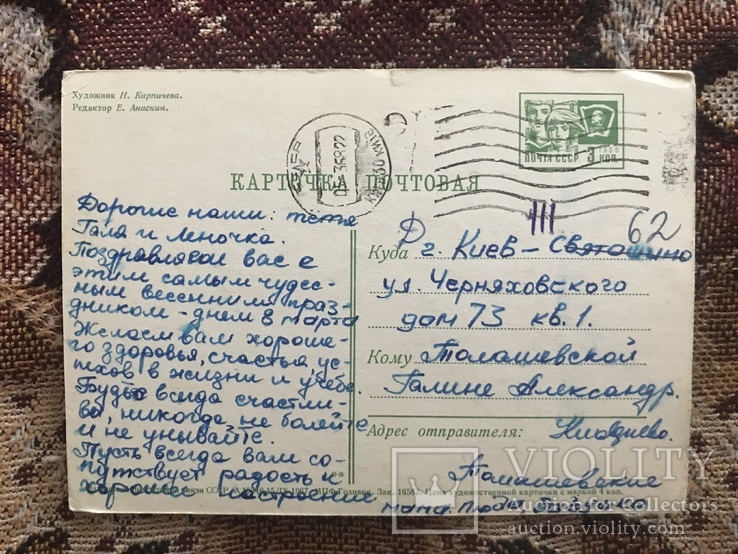 Художник Н. Кирпичева.
Редактор Е. Анискин.
ПОЧТА СССР 3 КОП.
КАРТОЧКА ПОЧТОВАЯ
III 62
Дорогие наши: тетя
Галя и Леночка.
Поздравляем вас с
этим самым чудес-
ным весенним праз-
дником - днем 8 марта
Желаем вам хороше-
го здоровья, счастья, ус-
пехов в жизни и учебе.
Будьте всегда счастли-
вы, никогда не болейте
и не унывайте.
Пусть всегда вам со-
путствует радость и
хорошее настроение
Куда г. Киев - Святошино
ул. Черняховского
дом 73 кв. 1.
Кому Толашевской
Галине Александр.
Адрес отправителя:
Толашевские
мама, Люда
Зак. 1658. Цена художественной карточки с маркой 4 коп.
VIOLITY
auction for collectors
auction.violity.com